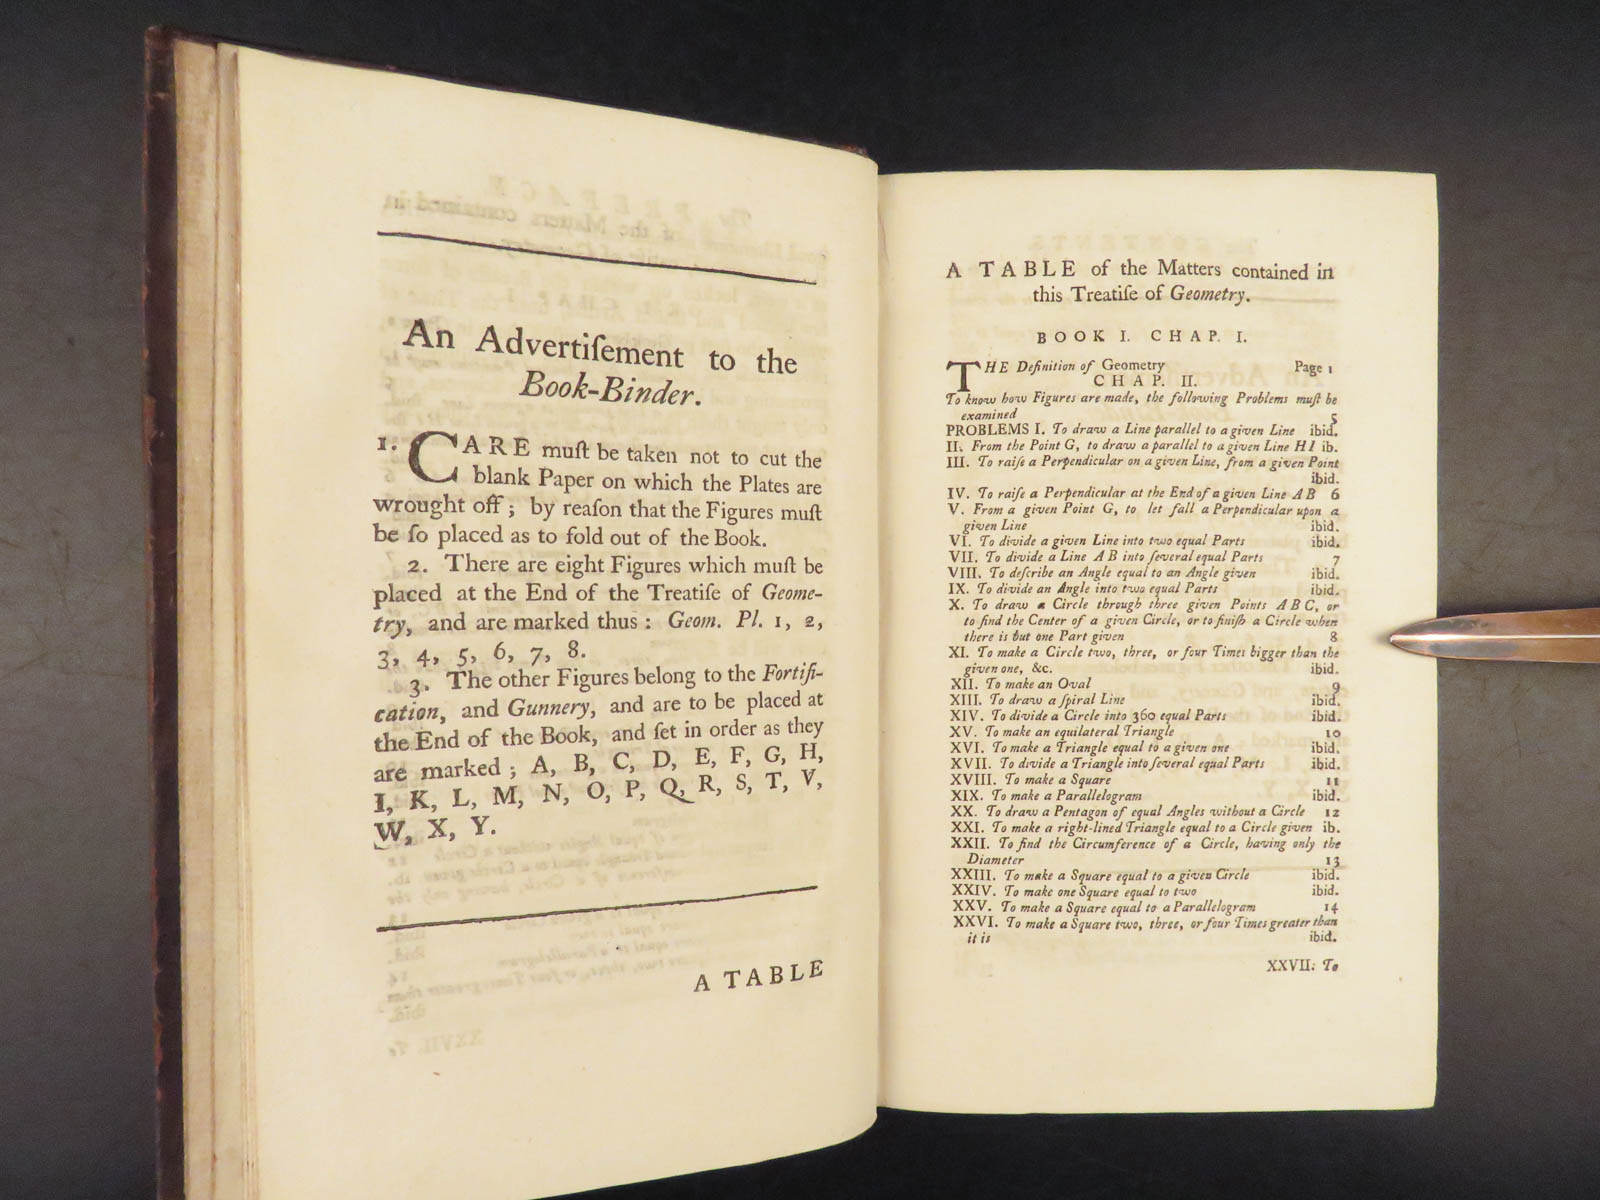 An Advertiſement to the
Book-Binder.
1. CARE muſt be taken not to cut the
blank Paper on which the Plates are
wrought off; by reaſon that the Figures muſt
be ſo placed as to fold out of the Book.
2. There are eight Figures which muſt be
placed at the End of the Treatiſe of Geome-
try, and are marked thus: Geom. Pl. 1, 2,
3, 4, 5, 6, 7, 8.
3. The other Figures belong to the Fortifi-
cation, and Gunnery, and are to be placed at
the End of the Book, and ſet in order as they
are marked; A, B, C, D, E, F, G, H,
I, K, L, M, N, O, P, Q, R, S, T, V,
W, X, Y.
A TABLE
A TABLE of the Matters contained in
this Treatiſe of Geometry.
BOOK I. CHAP. I.
THE Definition of Geometry Page 1
CHAP. II.
To know how Figures are made, the following Problems muſt be
examined 5
PROBLEMS I. To draw a Line parallel to a given Line ibid.
II. From the Point G, to draw a parallel to a given Line HI ib.
III. To raiſe a Perpendicular on a given Line, from a given Point
ibid.
IV. To raiſe a Perpendicular at the End of a given Line AB 6
V. From a given Point G, to let fall a Perpendicular upon a
given Line ibid.
VI. To divide a given Line into two equal Parts ibid.
VII. To divide a Line AB into ſeveral equal Parts 7
VIII. To deſcribe an Angle equal to an Angle given ibid.
IX. To divide an Angle into two equal Parts ibid.
X. To draw a Circle through three given Points ABC, or
to find the Center of a given Circle, or to finiſh a Circle when
there is but one Part given 8
XI. To make a Circle two, three, or four Times bigger than the
given one, &c. ibid.
XII. To make an Oval 9
XIII. To draw a ſpiral Line ibid.
XIV. To divide a Circle into 360 equal Parts ibid.
XV. To make an equilateral Triangle 10
XVI. To make a Triangle equal to a given one ibid.
XVII. To divide a Triangle into ſeveral equal Parts ibid.
XVIII. To make a Square 11
XIX. To make a Parallelogram ibid.
XX. To draw a Pentagon of equal Angles without a Circle 12
XXI. To make a right-lined Triangle equal to a Circle given ib.
XXII. To find the Circumference of a Circle, having only the
Diameter 13
XXIII. To make a Square equal to a given Circle ibid.
XXIV. To make one Square equal to two ibid.
XXV. To make a Square equal to a Parallelogram 14
XXVI. To make a Square two, three, or four Times greater than
it is ibid.
XXVII. To